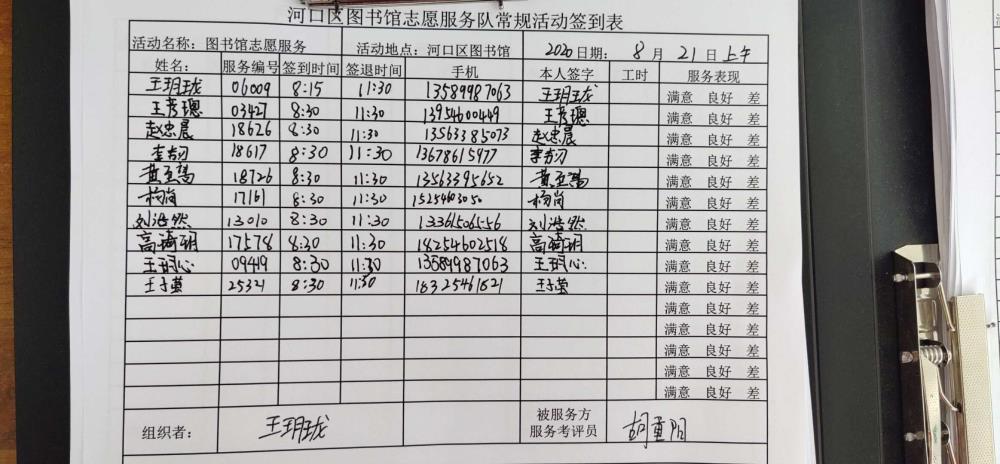 河口区图书馆志愿服务队常规活动签到表
活动名称：图书馆志愿服务 活动地点：河口区图书馆 2020日期：8月21日上午
姓名： 服务编号 签到时间 签退时间 手机 本人签字 工时 服务表现
王玥珑 06009 8:15 11:30 13589987063 王玥珑 满意 良好 差
王彦璁 03427 8:30 11:30 13954600449 王彦璁 满意 良好 差
赵忠晨 18626 8:30 11:30 13563385073 赵忠晨 满意 良好 差
18617 8:30 11:30 13678615977 满意 良好 差
18726 8:30 11:30 13563395652 满意 良好 差
杨岗 17161 8:30 11:30 15254603050 杨岗 满意 良好 差
刘浩然 13010 8:30 11:30 13361506556 刘浩然 满意 良好 差
高琦玥 17578 8:30 11:30 18254602518 高琦玥 满意 良好 差
王玥心 09419 8:30 11:30 13589987063 王玥心 满意 良好 差
王子萱 25321 8:30 11:30 18325461821 王子萱 满意 良好 差
满意 良好 差
满意 良好 差
满意 良好 差
满意 良好 差
满意 良好 差
组织者： 王玥珑 被服务方
服务考评员 胡重阳